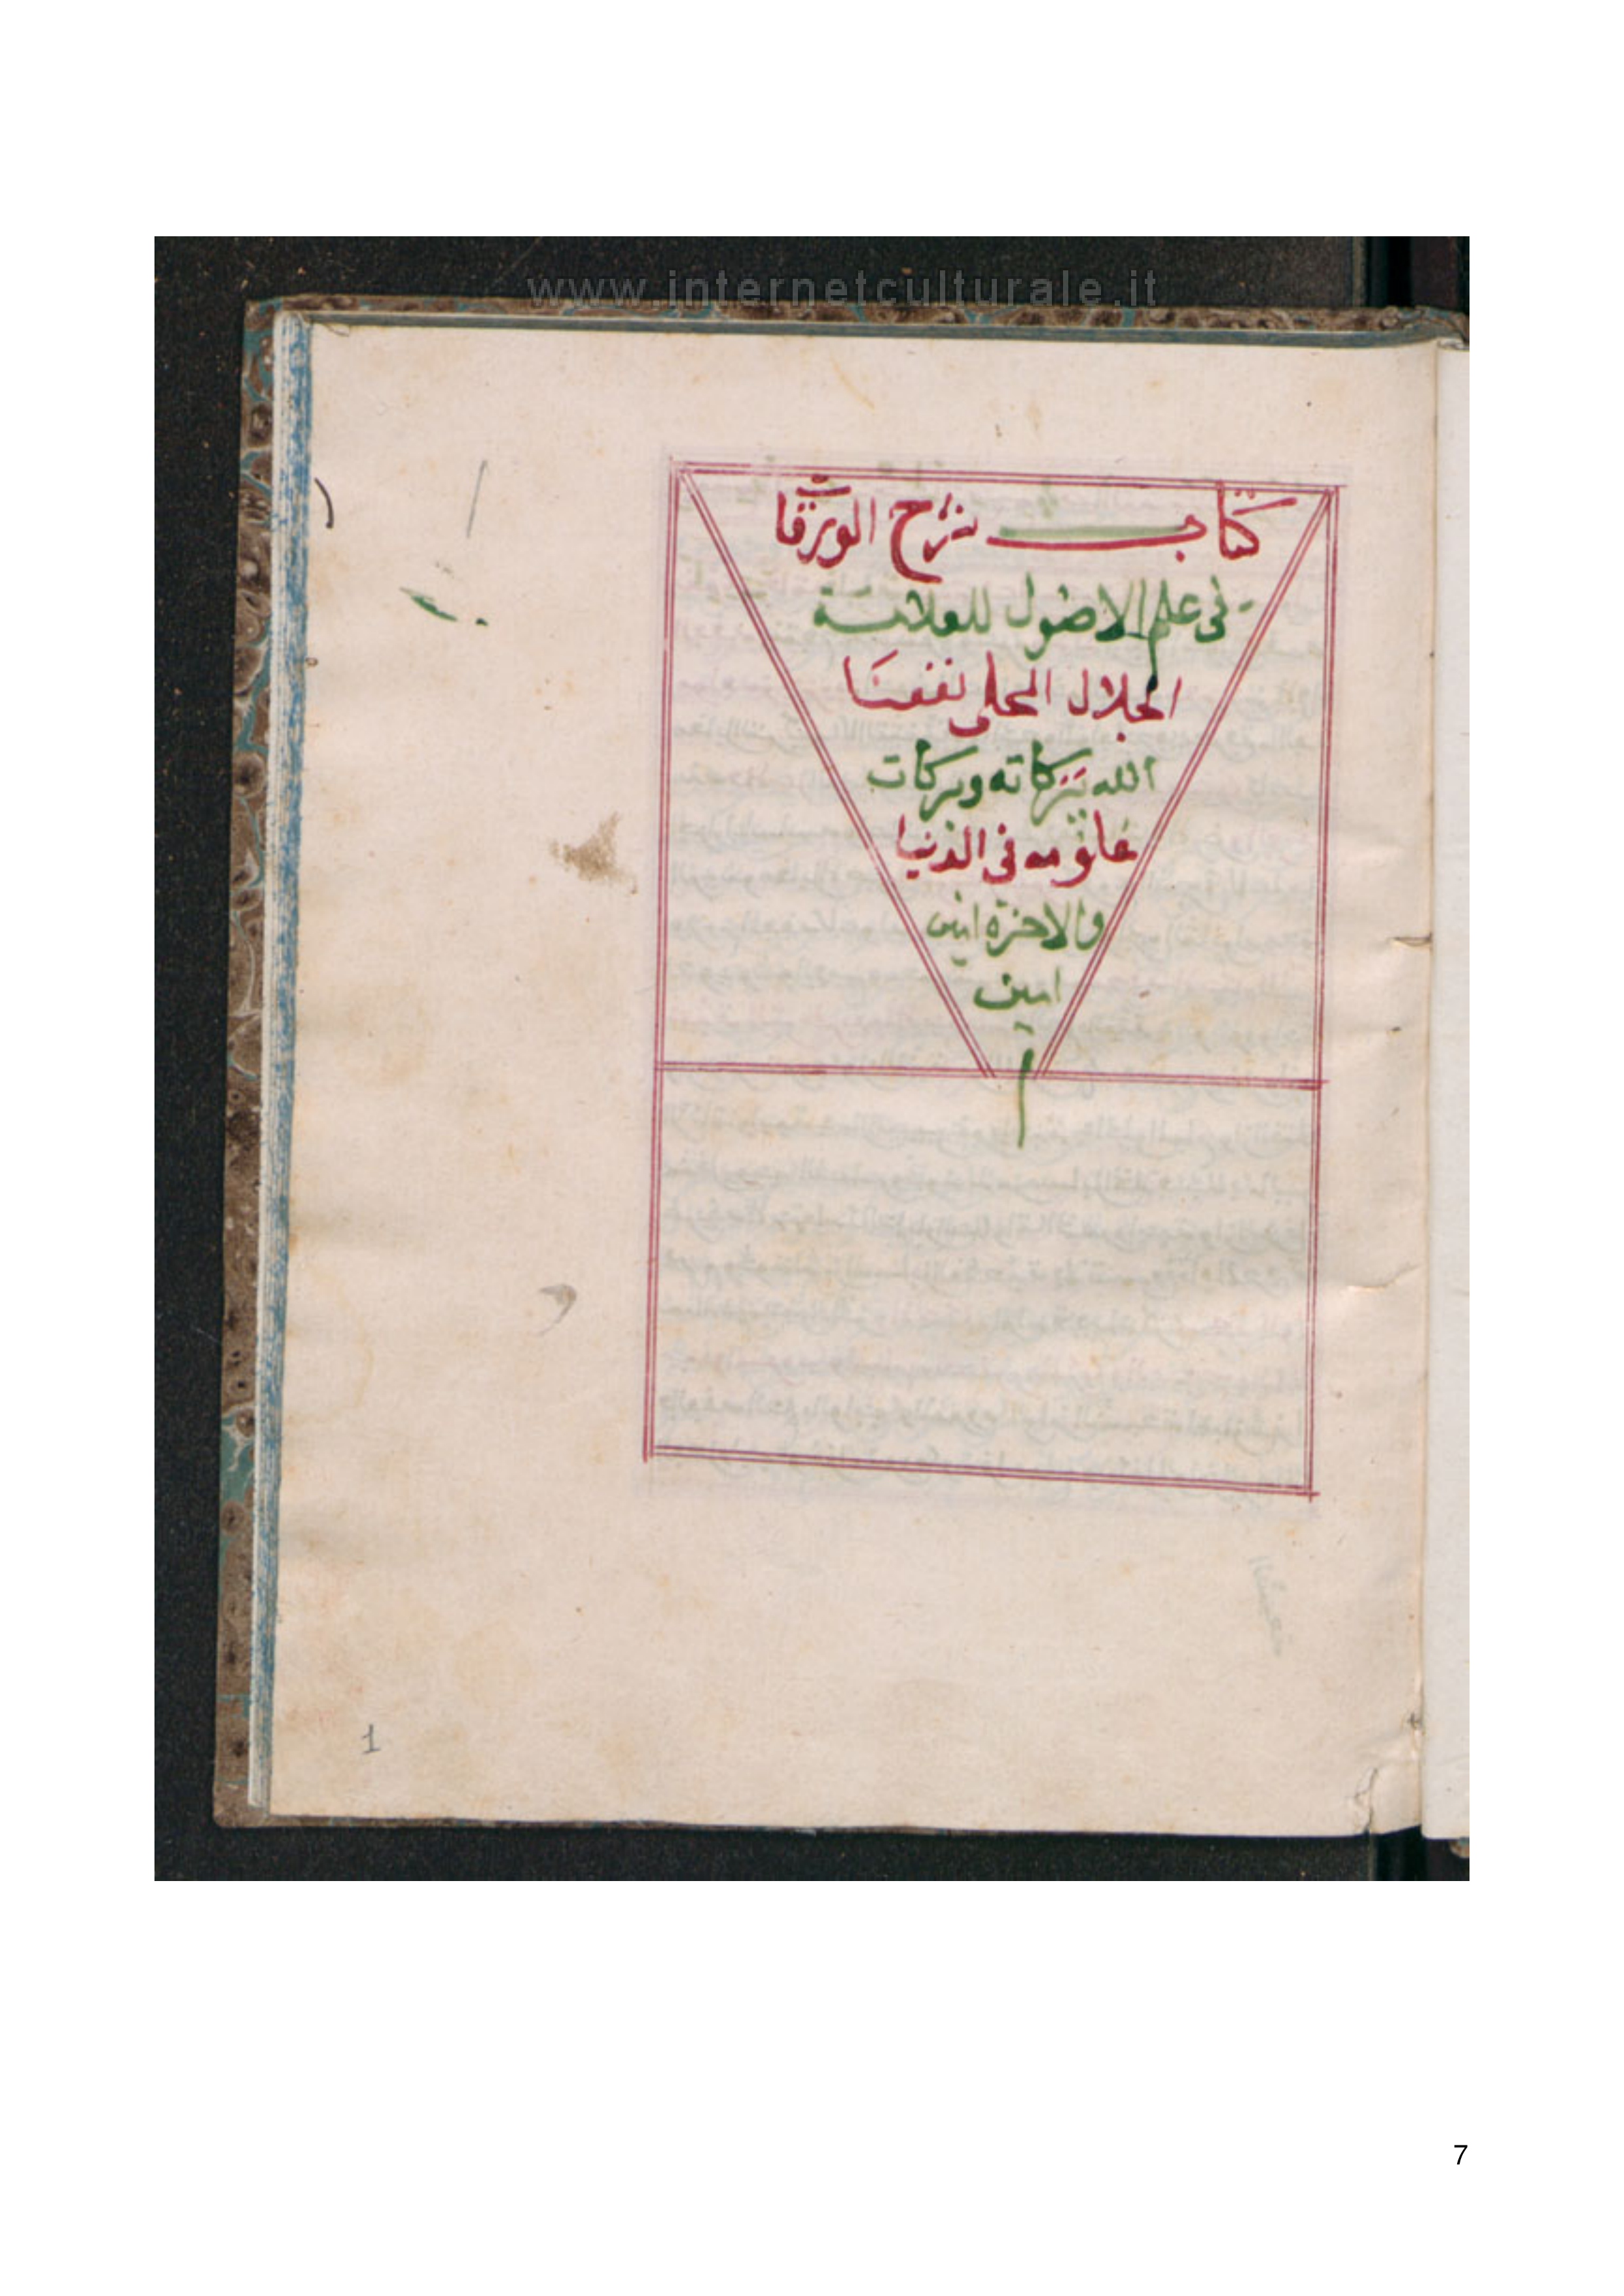 www.internetculturale.it
كتاب شرح الورقا
ت في علم الاصول للعلامة
الجلال المحلي نفعنا
الله ببركاته وبركات
علومه في الدنيا
والاخرة امين
امين
م
1
7